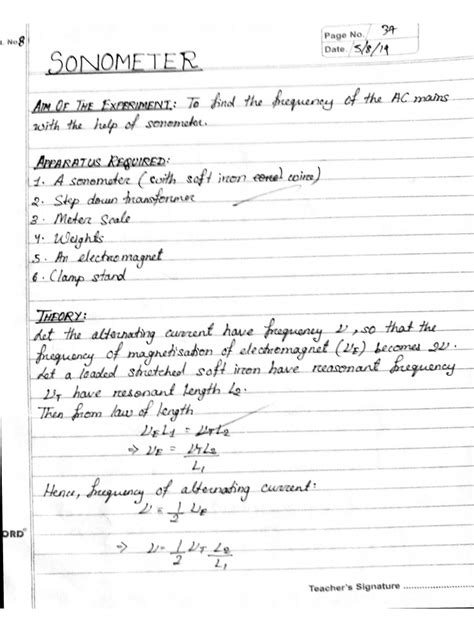 Page No. 34
No. 8
Date. 5/8/19
SONOMETER
AIM OF THE EXPERIMENT: To find the frequency of the AC mains
with the help of sonometer.
APPARATUS REQUIRED:
1. A sonometer (with soft iron wire)
2. Step down transformer
3. Meter Scale
4. Weights
5. An electromagnet
6. Clamp stand
THEORY:
Let the alternating current have frequency ν, so that the
frequency of magnetisation of electromagnet (νE) becomes 2ν.
Let a loaded stretched soft iron have reasonant frequency
νT have resonant length L2.
Then from law of length
νE L1 = νT L2
⇒ νE = νT L2 / L1
Hence, frequency of alternating current:
ν = 1/2 νE
ORD
⇒ ν = 1/2 νT L2/L1
Teacher's Signature ..................